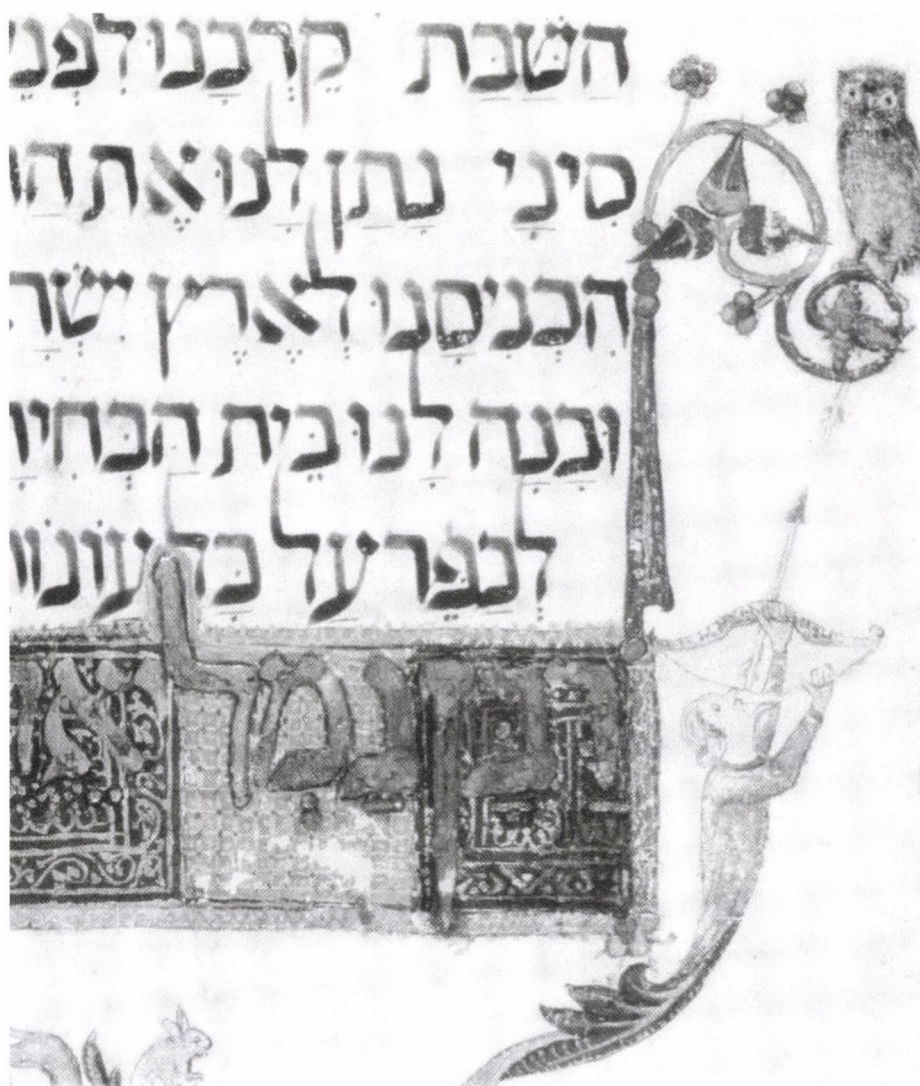 הַשַּׁבָּת קֵרְבָנוּ לִפְנֵי
סִינַי נָתַן לָנוּ אֶת הַ
הִכְנִיסָנוּ לְאֶרֶץ יִשְׂרָ
וּבָנָה לָנוּ בֵּית הַבְּחִי
לְכַפֵּר עַל כָּל עֲוֹנוֹ
רבן גמליא